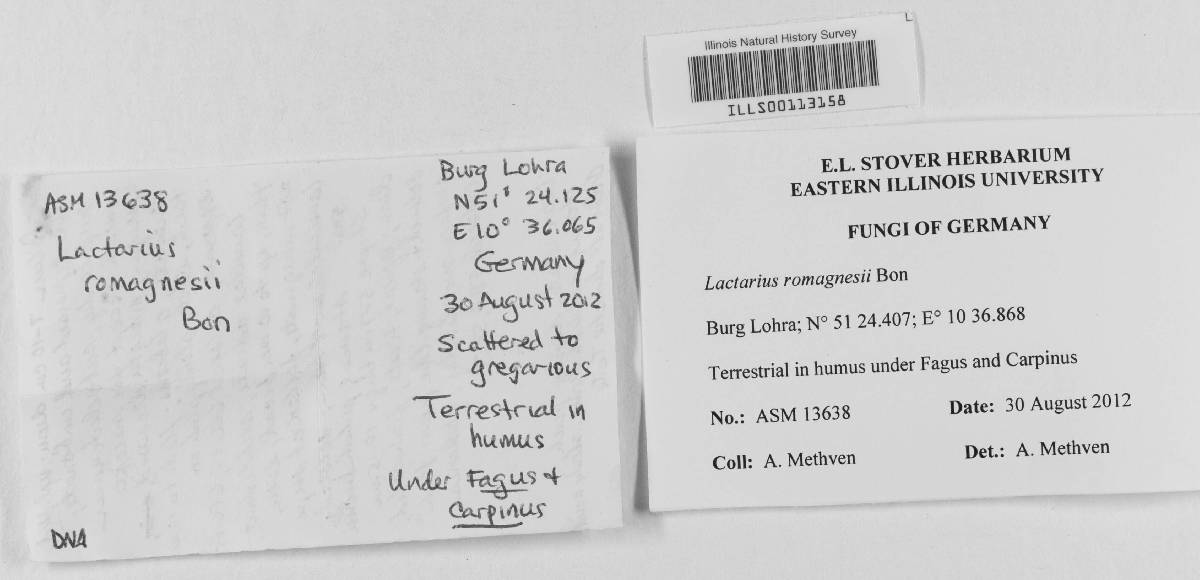 ASM 13638
Lactarius
romagnesii
Bon
DNA
Burg Lohra
N51° 24.125
E10° 36.065
Germany
30 August 2012
Scattered to
gregarious
Terrestrial in
humus
Under Fagus +
Carpinus
L
Illinois Natural History Survey
ILLS00113158
E.L. STOVER HERBARIUM
EASTERN ILLINOIS UNIVERSITY
FUNGI OF GERMANY
Lactarius romagnesii Bon
Burg Lohra; N° 51 24.407; E° 10 36.868
Terrestrial in humus under Fagus and Carpinus
No.: ASM 13638 Date: 30 August 2012
Coll: A. Methven Det.: A. Methven